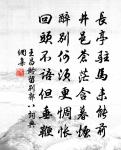 長亭駐馬未能前
井邑蒼茫含暮煙
醉別何須更惆悵
回頭不語但垂鞭
王昌齡留別郭八詞典
網集